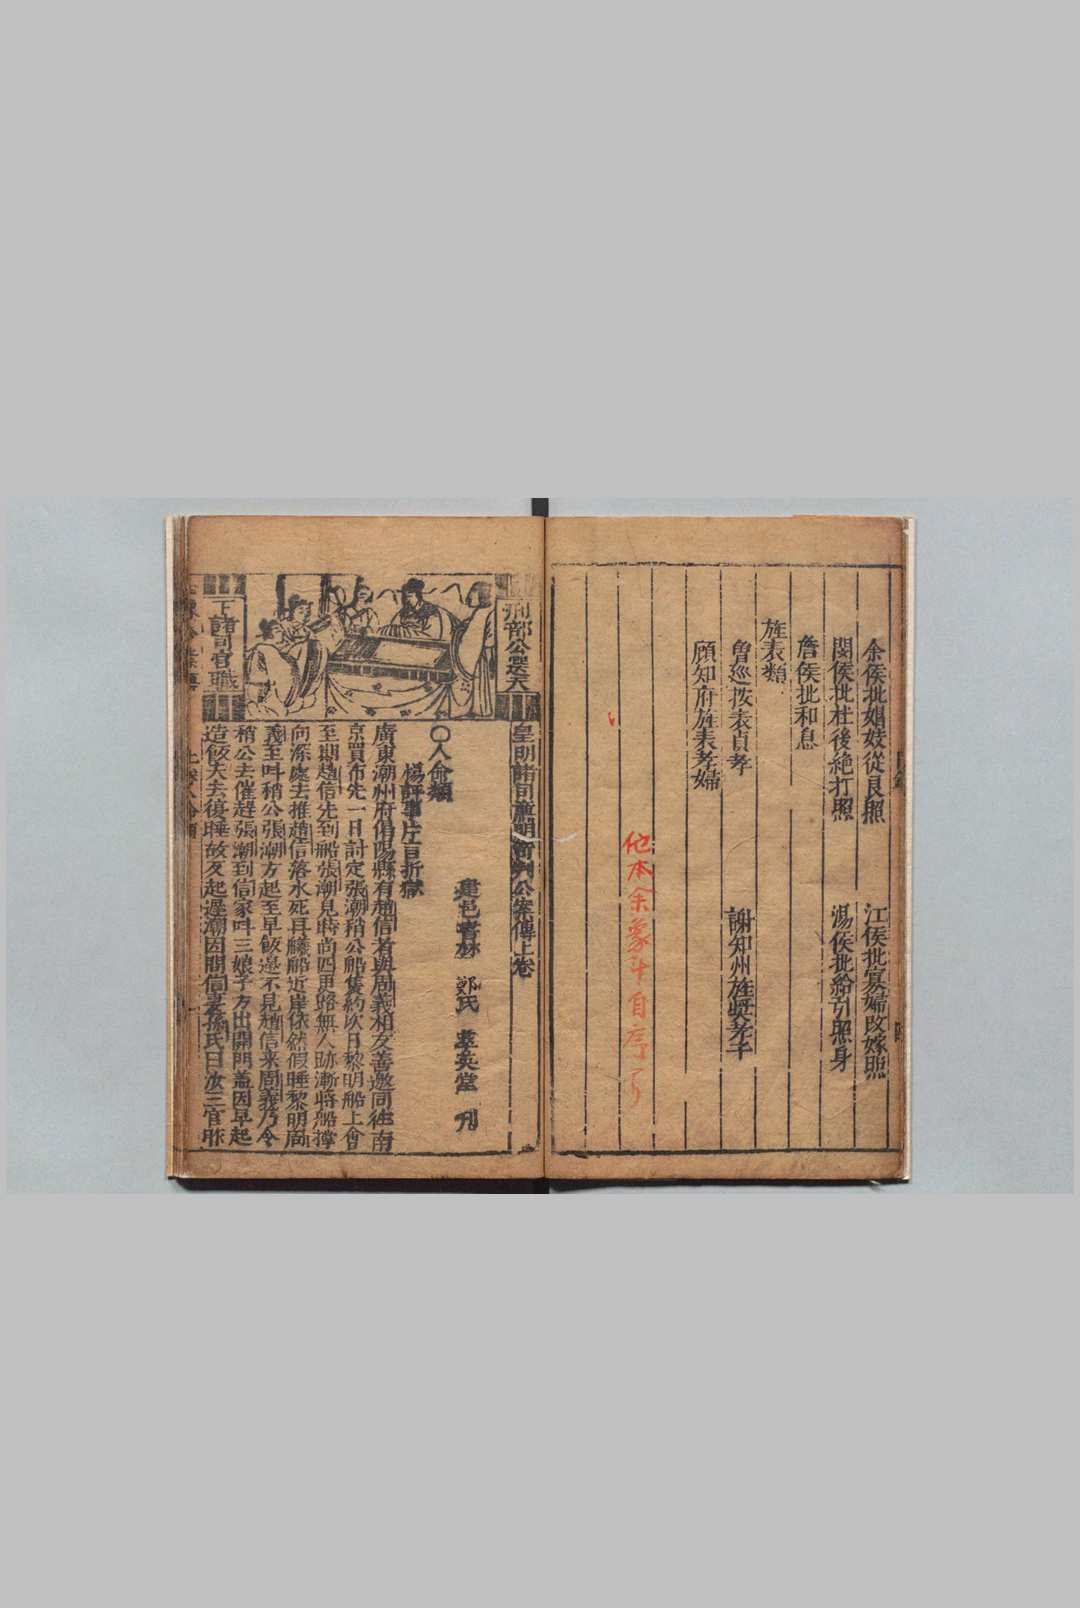 余侯批娼妓從良照　江侯批寡婦改嫁照
閔侯批杜後絶打照　湯侯批給引照身
詹侯批和息
旌表類
魯巡按表貞孝　謝知州旌奬孝子
顧知府旌表孝婦
他本余象斗自序了
刑部公選天
下諸司官職
皇明諸司廉明奇判公案傳上卷
建邑書林　鄭氏　萃英堂　刊
〇人命類
楊評事片言折獄
廣東潮州府揭陽縣有趙信者與周義相友善邀同往南
京買布先一日討定張潮稍公船隻約次日黎明船上會
至期趙信先到船張潮見時尚四更路無人跡漸將船撑
向深處去推趙信落水死再艤船近岸依然假睡黎明周
義至叫稍公張潮方起至早飯邊不見趙信来周義乃令
稍公去催趕張潮到信家叫三娘子方出開門盖因早起
造飯夫去復睡故反起遲潮因問信妻孫氏曰汝三官昨